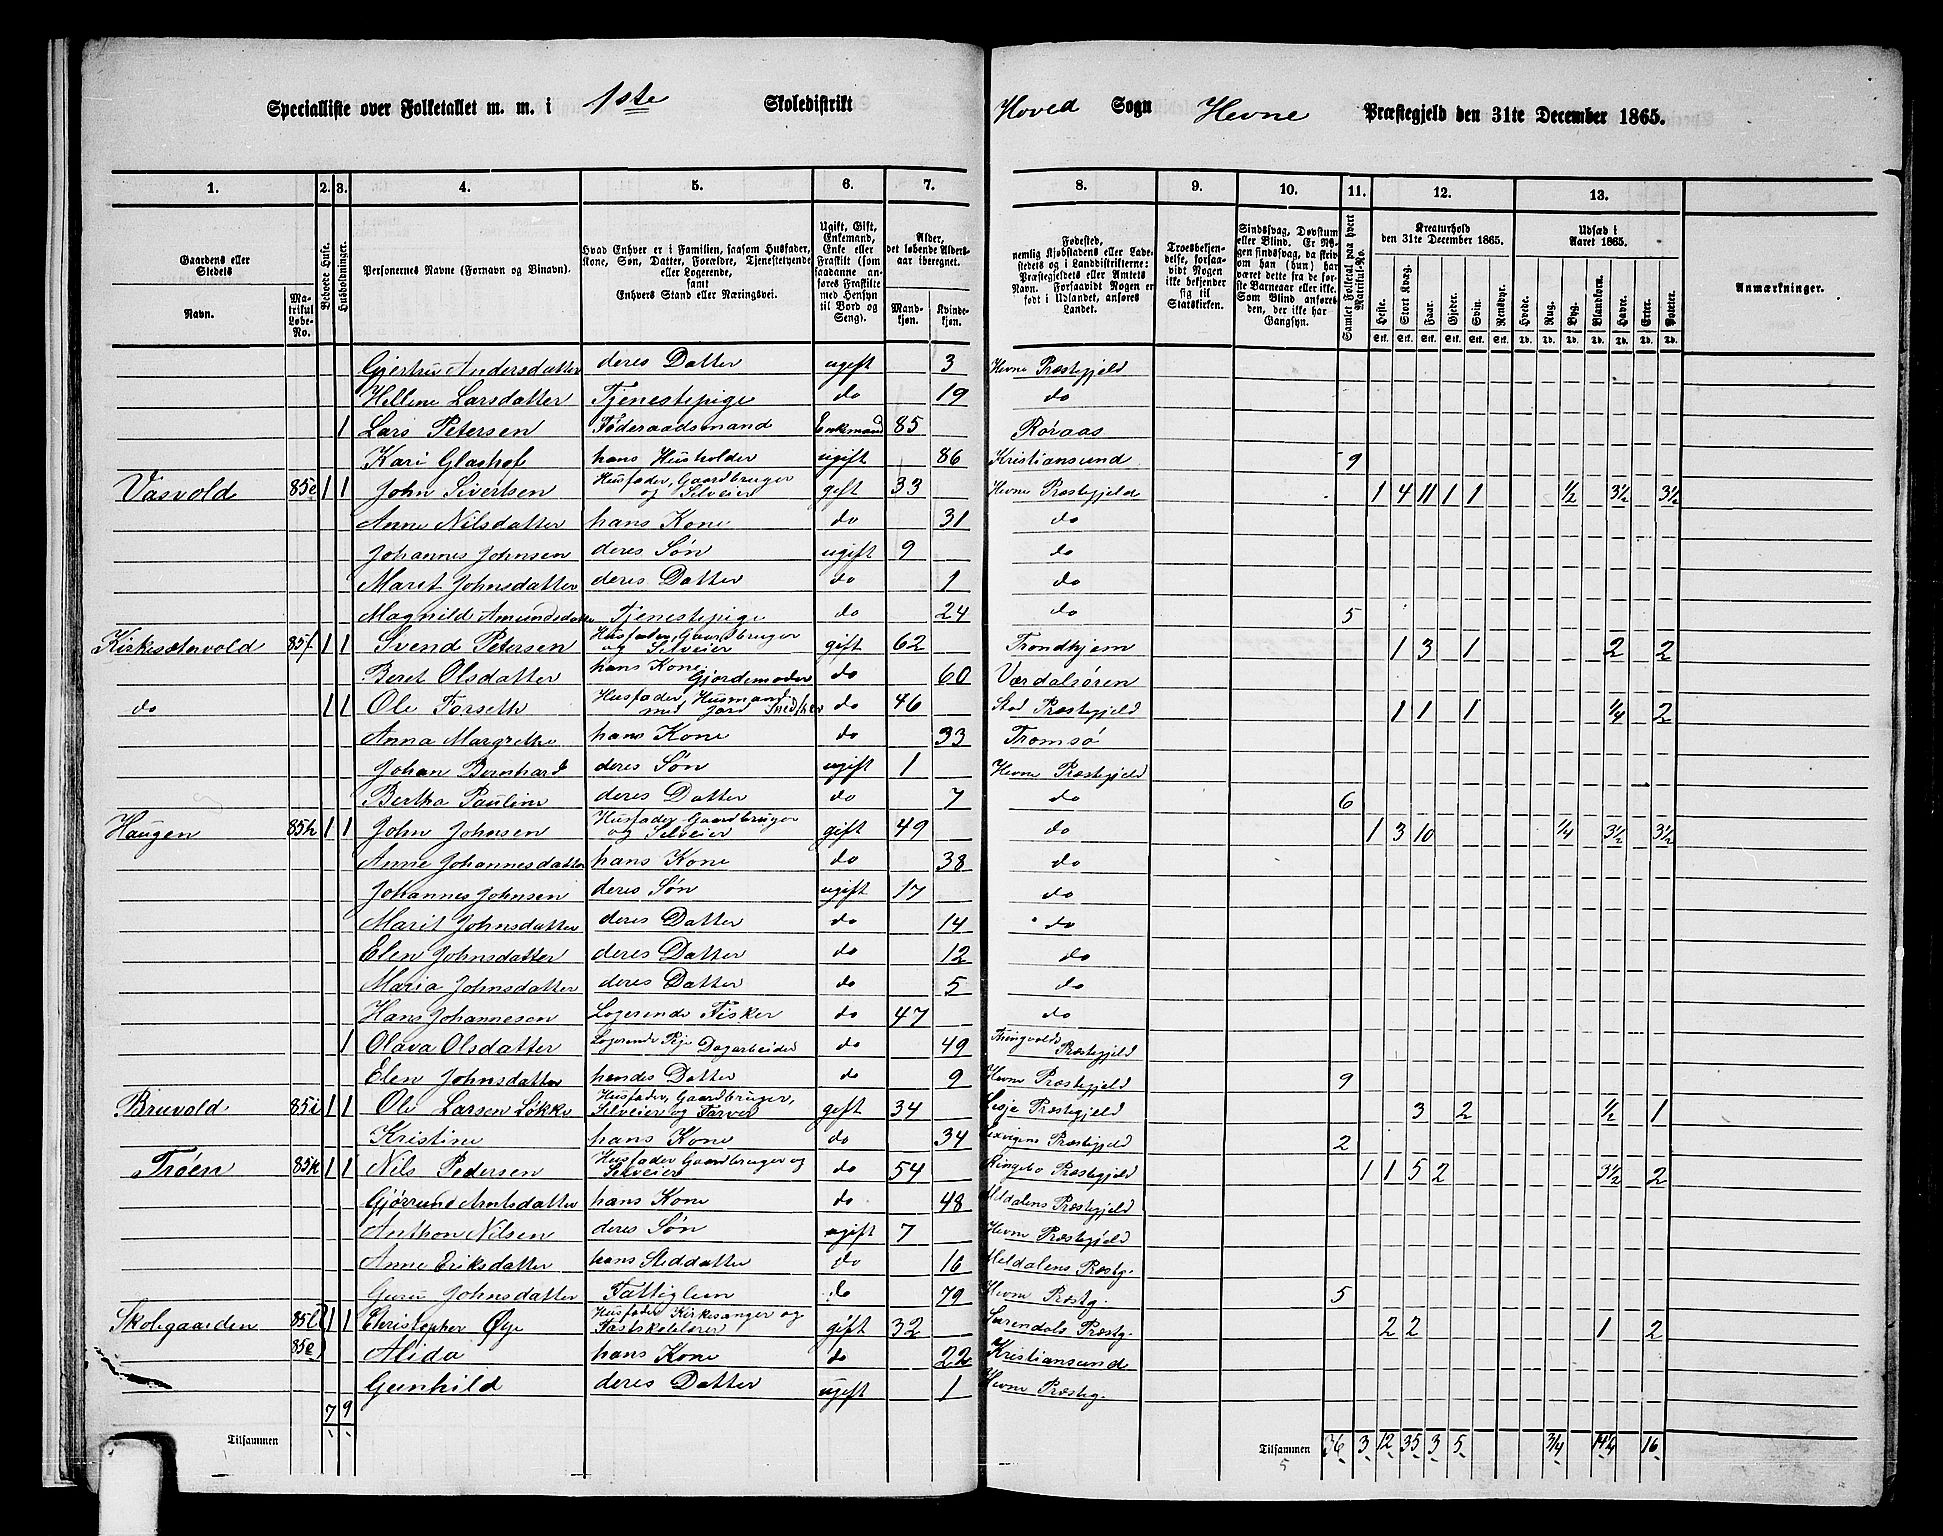 Specialliste over Folketallet m. m. i 1ste Skoledistrikt Hoved Sogn Hevne Præstegjeld den 31te December 1865.
1. 2. 3. 4. 5. 6. 7. 8. 9. 10. 11. 12. 13.
Gaardens eller Stedets
Navn.
Matrikul Løbe-No.
Beboede Huse.
Husholdninger.
Personernes Navne (Fornavn og Binavn).
Hvad Enhver er i Familien, saasom Husfader, Kone, Søn, Datter, Forældre, Tjenestetyende eller Logerende, samt Enhvers Stand eller Næringsvei.
Ugift, Gift, Enkemand, Enke eller Fraskilt (som saadanne anføres Fraskilte med Hensyn til Bord og Seng).
Alder, det løbende Alders-aar iberegnet.
Mandkjøn. Kvindekjøn.
Fødested, nemlig Kjøbstadens eller Ladestedets og i Landdistrikterne: Præstegjeldets eller Amtets Navn. Forsaavidt Nogen er født i Udlandet, anføres Landet.
Troesbekjendelse, forsaavidt Nogen ikke bekjender sig til Statskirken.
Sindssvag, Døvstum eller Blind. Er Nogen sindssvag, da skrives om han (hun) har været dette fra de første Barneaar eller ikke. Som Blind anføres den, der ikke har Gangsyn.
Samlet Folketal paa hvert Matrikul-No.
Kreaturhold den 31te December 1865.
Heste. Stort Kvæg. Faar. Gjeder. Svin. Rensdyr.
Udsæd i Aaret 1865.
Hvede. Rug. Byg. Blandkorn. Havre. Erter. Poteter.
Anmærkninger.
Gjertru Andersdatter deres Datter ugift 3 Hevne Præstegjeld
Hellene Larsdatter Tjenestepige do 19 do
1 Lars Petersen Föderaadsmand Enkemand 85 Röraas
Kari Glashof hans Husholder ugift 86 Kristiansund 9
Vasvold 85e 1 1 John Sivertsen Husfader, Gaardbruger og Selveier gift 33 Hevne Præstegjeld 1 4 11 1 1 1/2 3 1/2 3 1/2
Anne Nilsdatter hans Kone do 31 do
Johannes Johnsen deres Søn ugift 9 do
Marit Johnsdatter deres Datter do 1 do
Magnild Amundsdatter Tjenestepige do 24 do 5
Kirkesætervold 85f 1 1 Svend Petersen Husfader, Gaardbruger og Selveier gift 62 Trondhjem 1 3 1 2 2
Beret Olsdatter hans Kone Gjordemoder do 60 Værdalsören
do 1 1 Ole Forseth Husfader, Husmand med Jord Snedker do 46 Stod Præstegjeld 1 1 1 1/4 2
Anna Margrethe hans Kone do 33 Tromsö
Johan Bernhard deres Søn ugift 1 Hevne Præstegjeld
Bertha Pauline deres Datter do 7 do 6
Haugen 85h 1 1 John Johnsen Husfader Gaardbruger og Selveier gift 49 do 1 3 10 1/4 3 1/2 3 1/2
Anne Johannesdatter hans Kone do 38 do
Johannes Johnsen deres Søn ugift 17 do
Marit Johnsdatter deres Datter do 14 do
Elen Johnsdatter deres Datter do 12 do
Maria Johnsdatter deres Datter do 5 do
Hans Johannesen Logerende Fisker do 47 do
1 Olava Olsdatter Logerende Pige Dagarbeider do 49 Thingvolds Præstegjeld
Elen Johnsdatter hendes Datter do 9 Hevne Præstegjeld 9
Bruvold 85i 1 1 Ole Larsen Løkke Husfader, Gaardbruger, Selveier og Farver gift 34 Vesje Præstegjeld 3 2 1/2 1
Kristine hans Kone do 34 Lexvigens Præstegjeld 2
Trøen 85k 1 1 Nils Pedersen Husfader Gaardbruger og Selveier do 54 Ringebo Præstegjeld 1 1 5 2 3 1/2 2
Gjörrund Arntsdatter hans Kone do 48 Meldalens Præstegjeld
Anthon Nilsen deres Søn ugift 7 Hevne Præstegjeld
Anne Eriksdatter hans Steddatter do 16 Meldalens Præstg.
Guru Johnsdatter Fattiglem do 79 Hevne Præstg. 5
Skolegaarden 85l 1 1 Christopher Øye Husfader Kirkesanger og Fastskolelærer gift 32 Surendals Præstg. 2 2 1 2
85e Alida hans Kone do 22 Kristiansund
Gunhild deres Datter ugift 1 Hevne Præstg.
7 9
Tilsammen Tilsammen 36 3 12 35 3 5 3/4 14 1/4 16
5